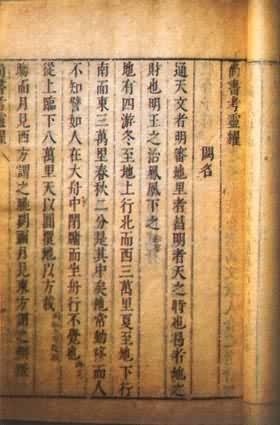 尚書考靈耀
闕名
通天文者明審地里者昌明者天之時也昌者地之
財也明王之治鳳凰下之
地有四游冬至地上行北而西三萬里夏至地下行
南而東三萬里春秋二分是其中矣地常動移而人
不知譬如人在大舟中閉牖而坐舟行不覺也
從上臨下八萬里天以圓覆地以方載
晦而月見西方謂之朓朔而月見東方謂之側匿
尚書考靈耀